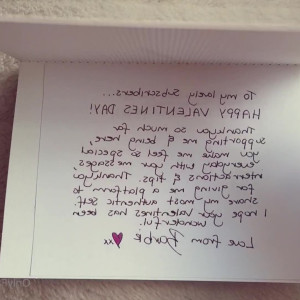 To my lovely subscribers...
HAPPY VALENTINES DAY!
Thankyou so much for
supporting me & being here,
you make me feel so special
everyday with your messages,
interactions & tips. Thankyou
for giving me a platform to
share my most authentic self.
I hope your valentines has been
wonderful!
Love from Barbie xx